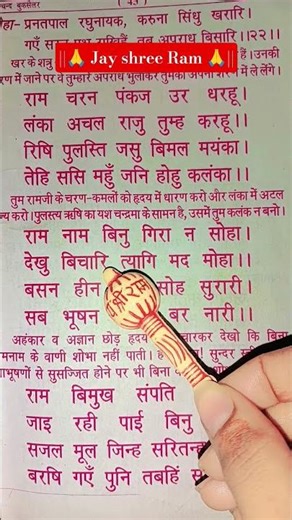 || 🙏 Jay shree Ram 🙏 ||
चन्द बुकसेलर
(43)
प्रनतपाल रघुनायक, करुना सिंधु खरारि।
गएँ अपराध बिसारि।।२२।।
खर के शत्रु हैं। उनकी
रण में जाने पर वे तुम्हारे अपराध भुलाकर तुमको अपनी शरण में ले लेंगे।
राम चरन पंकज उर धरहू।
लंका अचल राजु तुम्ह करहू।।
रिषि पुलस्ति जसु बिमल मयंका।
तेहि ससि महुँ जनि होहु कलंका।।
तुम रामजी के चरण-कमलों को हृदय में धारण करो और लंका में अटल
ज्य करो। पुलस्त्य ऋषि का यश चन्द्रमा के सामन है, उसमें तुम कलंक न बनो।
राम नाम बिनु गिरा न सोहा।
देखु बिचारि त्यागि मद मोहा।।
बसन हीन सोह सुरारी।
सब भूषन बर नारी।।
श्री राम
अहंकार व अज्ञान छोड़ कर देखो कि बिना
मनाम के वाणी शोभा नहीं पाती। सुन्दर
भूषणों से सुसज्जित होने पर भी बिना
राम बिमुख संपति
जाइ रही पाई बिनु
सजल मूल जिन्ह सरितन्ह
बरषि गएँ पुनि तबहिं